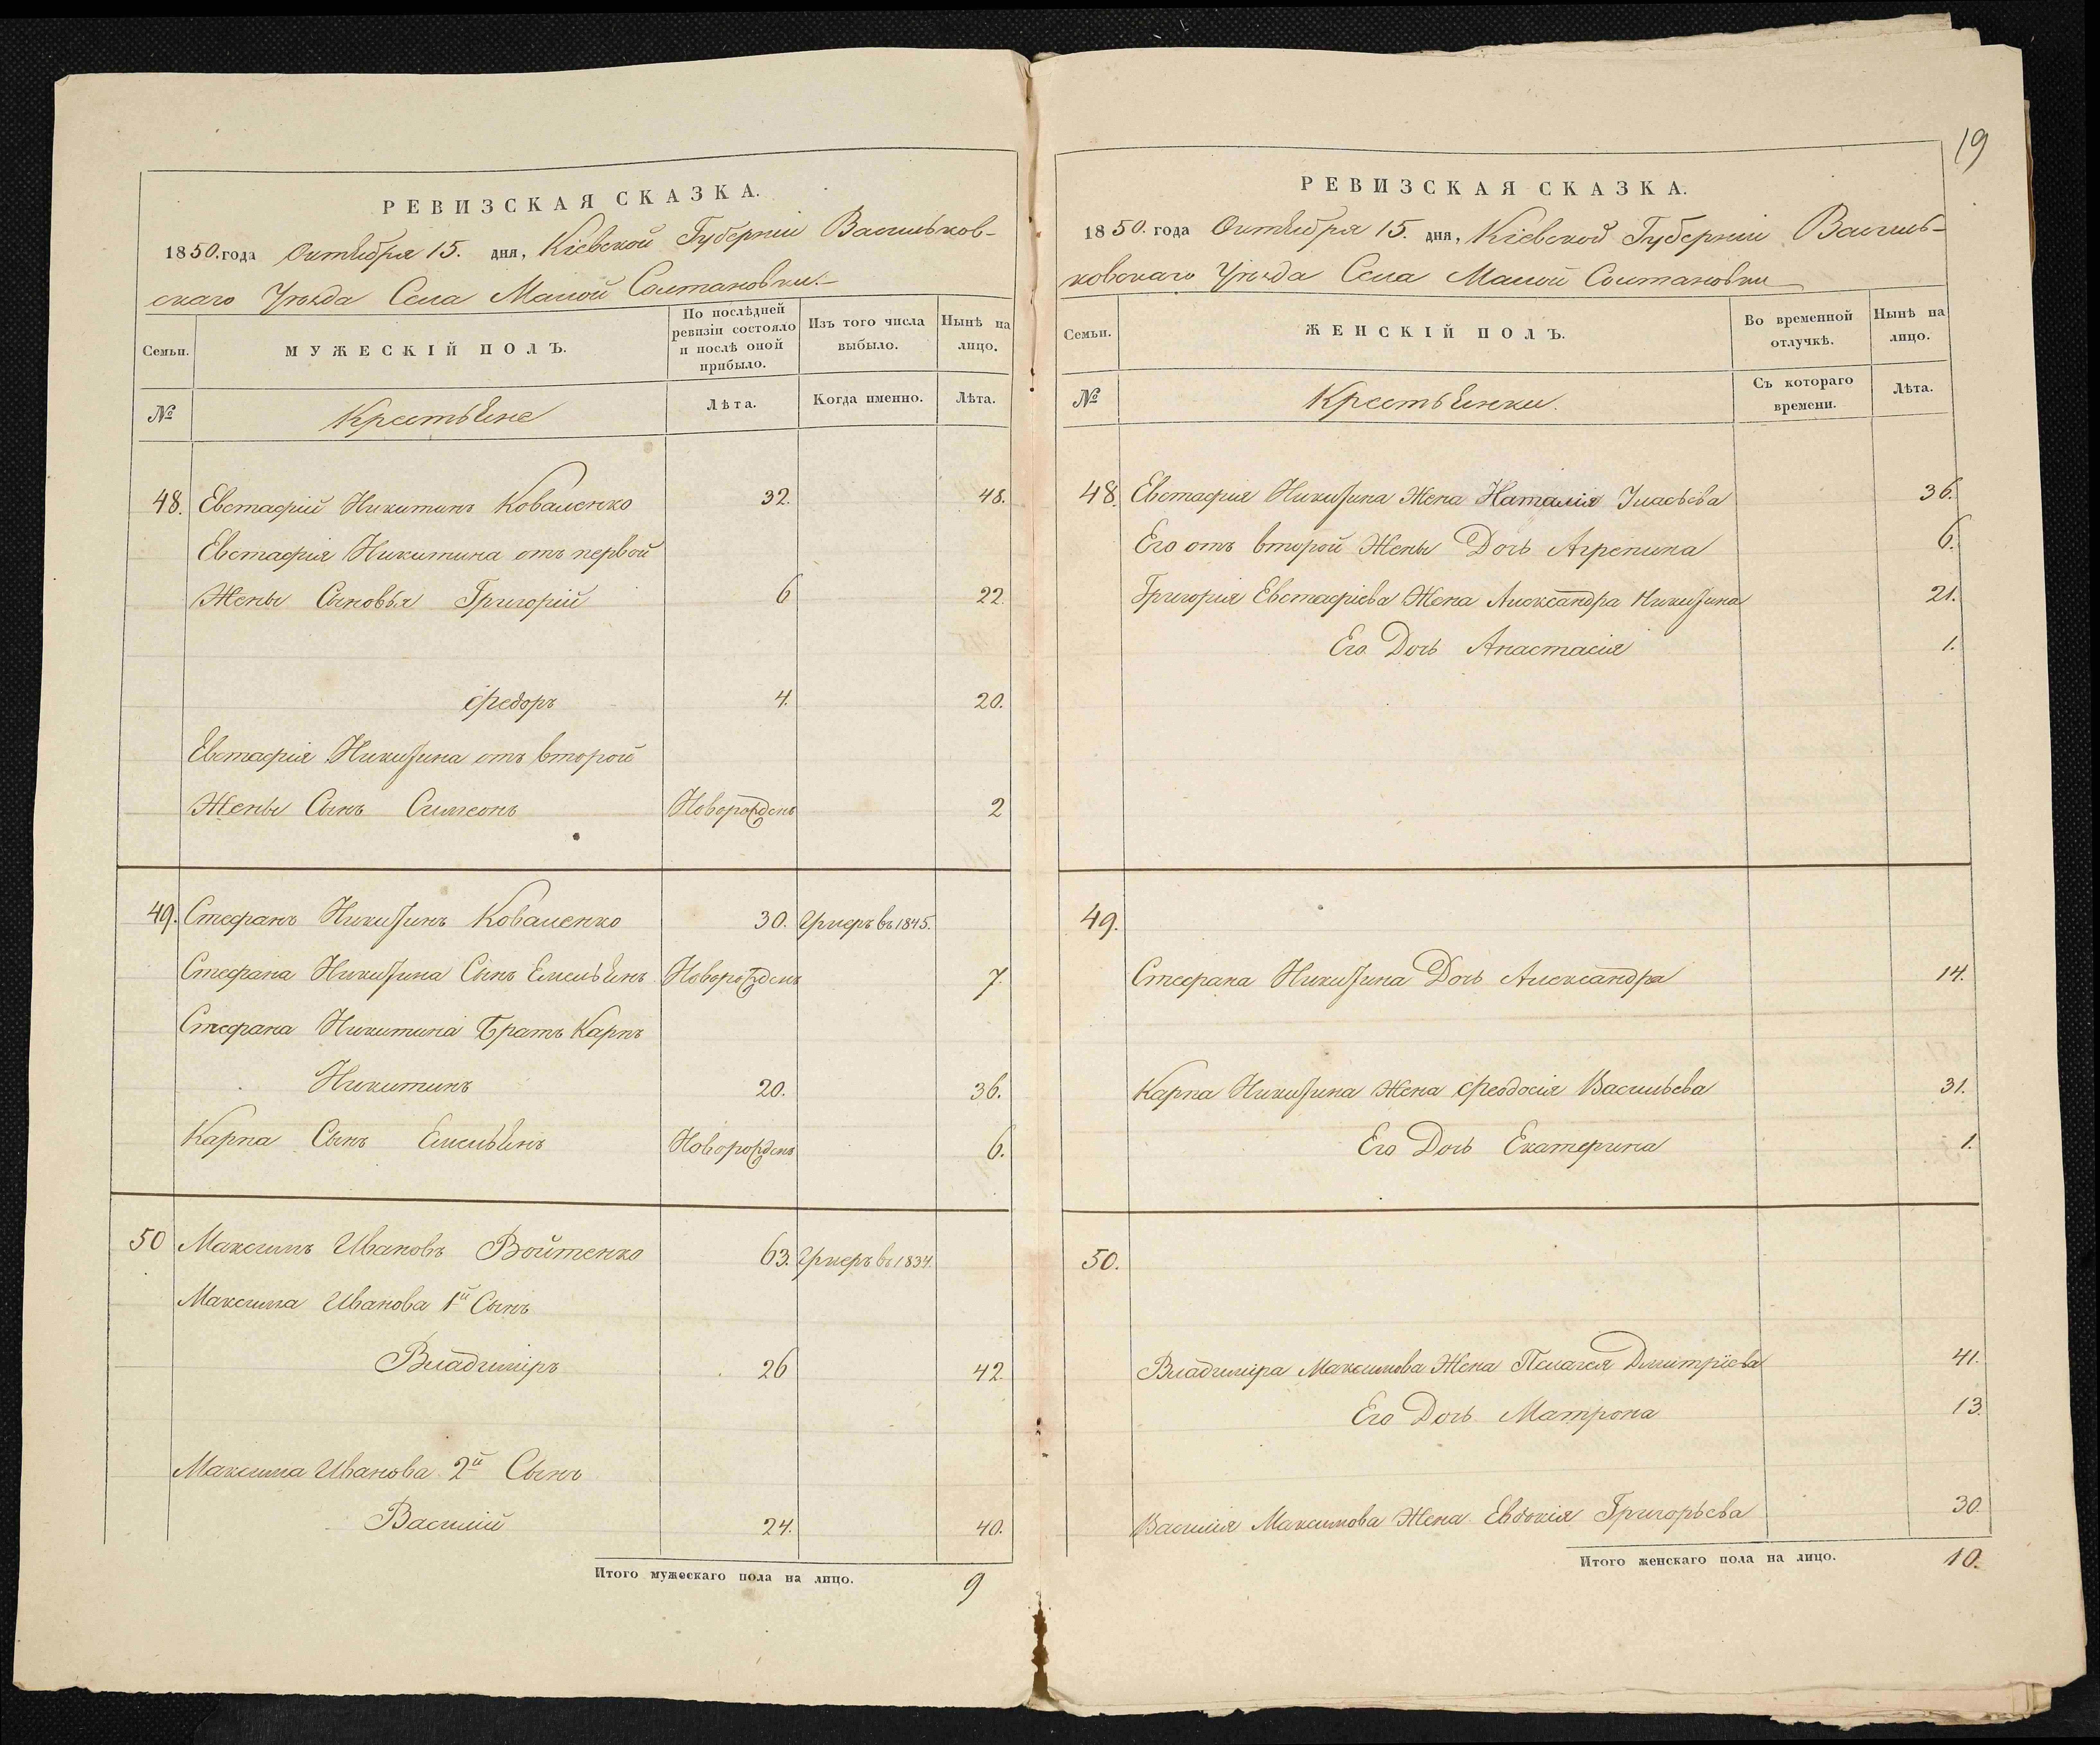 19
РЕВИЗСКАЯ СКАЗКА.
1850. года Октября 15. дня, Кіевской Губерніи Васильков-
скаго Уѣзда Села Малой Солтановки.
Семьи.
МУЖЕСКІЙ ПОЛЪ.
По послѣдней ревизіи состояло и послѣ оной прибыло.
Изъ того числа выбыло.
Нынѣ на лицо.
№
Крестьяне
Лѣта.
Когда именно.
Лѣта.
48. Евстафій Никитинъ Коваленко 32. 48.
Евстафія Никитина отъ первой
Жены Сыновья Григорій 6 22.
Федоръ 4. 20.
Евстафія Никитина отъ второй
Жены Сынъ Симеонъ Новорожденъ 2
49. Стефанъ Никитинъ Коваленко 30. Умеръ въ 1845.
Стефана Никитина Сынъ Емельянъ Новорожденъ 7.
Стефана Никитина Братъ Карпъ
Никитинъ 20. 36.
Карпа Сынъ Емельянъ Новорожденъ 6.
50 Максимъ Ивановъ Войтенко 63. Умеръ въ 1834.
Максима Иванова 1й Сынъ
Владиміръ 26 42.
Максима Иванова 2й Сынъ
Василій 24. 40.
Итого мужескаго пола на лицо. 9
РЕВИЗСКАЯ СКАЗКА.
1850. года Октября 15. дня, Кіевской Губерніи Василь-
ковскаго Уѣзда Села Малой Солтановки
Семьи.
ЖЕНСКІЙ ПОЛЪ.
Во временной отлучкѣ.
Нынѣ на лицо.
№
Крестьянки.
Съ котораго времени.
Лѣта.
48. Евстафія Никитина Жена Наталія Власьева 36.
Его отъ второй Жены Дочь Агрепина 6.
Григорія Евстафіева Жена Александра Никитина 21.
Его Дочь Анастасія 1.
49.
Стефана Никитина Дочь Александра 14.
Карпа Никитина Жена Феодосія Васильева 31.
Его Дочь Екатерина 1.
50.
Владиміра Максимова Жена Пелагея Дмитріева 41.
Его Дочь Матрона 13.
Василія Максимова Жена Евдокія Григорьева 30.
Итого женскаго пола на лицо. 10.